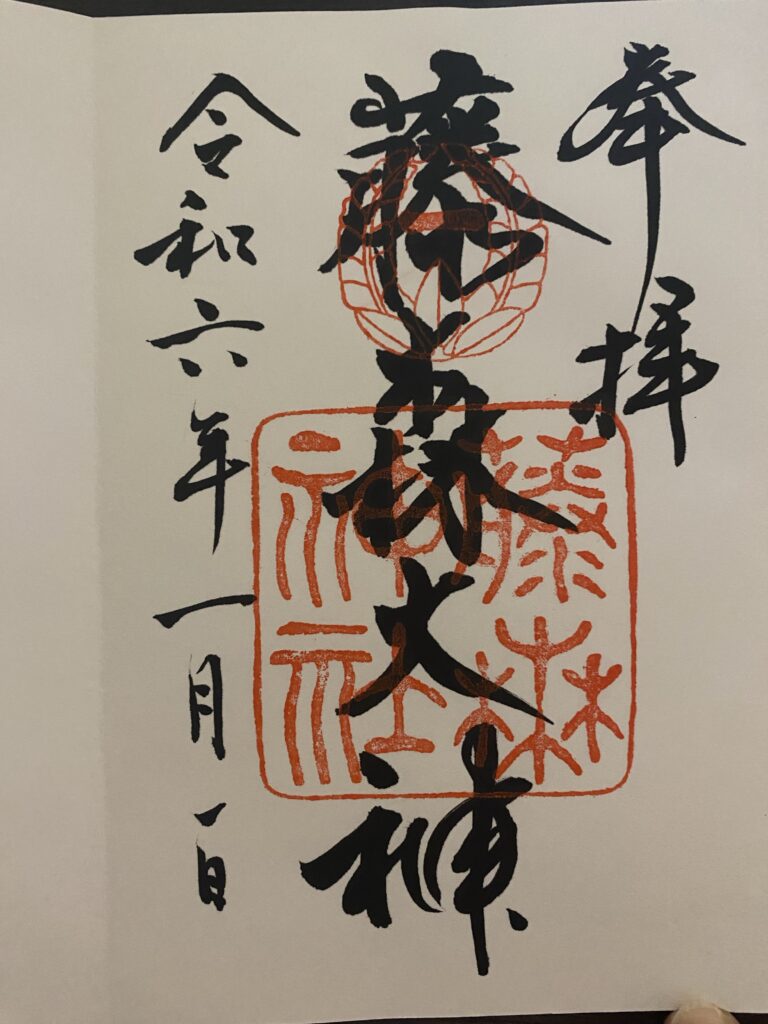 奉拝
藤森大神
藤森
神社
令和六年一月一日